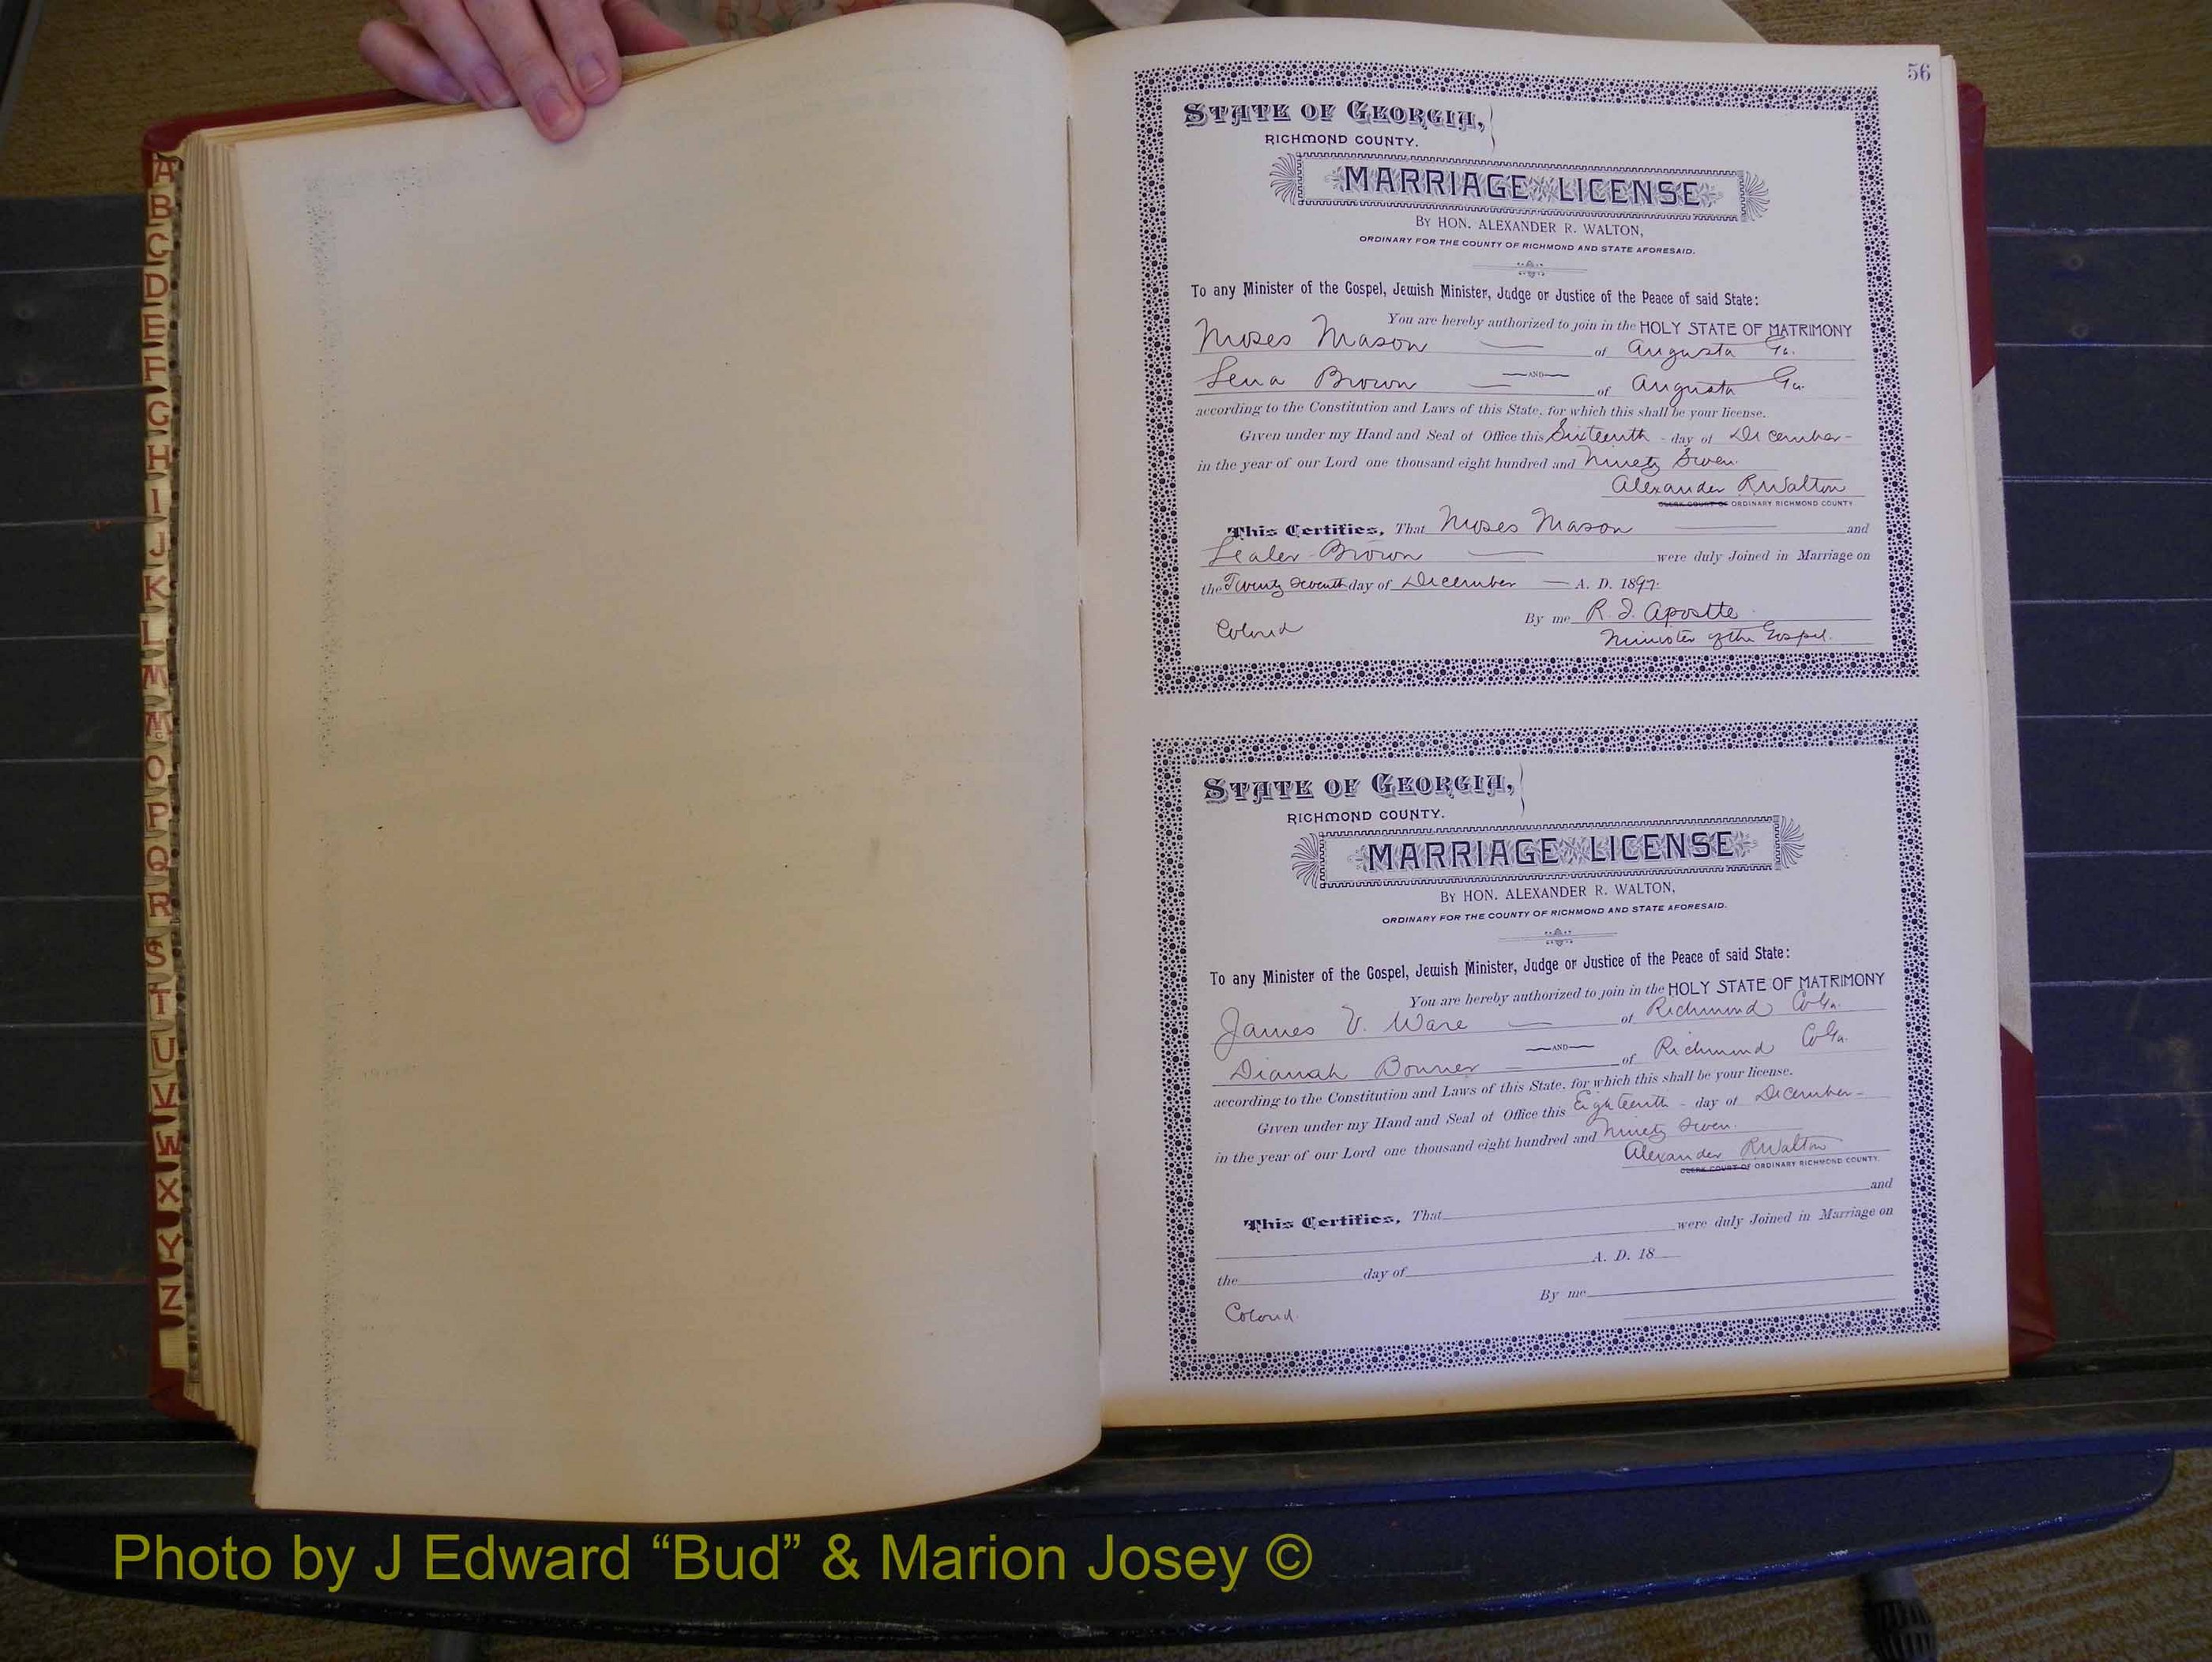 A
B
C
D
E
F
G
H
I
J
K
L
M
Mc
O
P
Q
R
S
T
U
V
W
X
Y
Z
56
STATE OF GEORGIA,
RICHMOND COUNTY.
MARRIAGE LICENSE
BY HON. ALEXANDER R. WALTON,
ORDINARY FOR THE COUNTY OF RICHMOND AND STATE AFORESAID.
To any Minister of the Gospel, Jewish Minister, Judge or Justice of the Peace of said State:
You are hereby authorized to join in the HOLY STATE OF MATRIMONY
Moses Mason of Augusta Ga.
AND
Lena Brown of Augusta Ga.
according to the Constitution and Laws of this State, for which this shall be your license.
Given under my Hand and Seal of Office this Sixteenth - day of December -
in the year of our Lord one thousand eight hundred and Ninety Seven.
Alexander R Walton
CLERK COURT OF ORDINARY RICHMOND COUNTY.
This Certifies, That Moses Mason and
Lealer Brown were duly Joined in Marriage on
the Twenty Seventh day of December A. D. 1897.
By me R. I. Apostte
Colord Minister of the Gospel.
STATE OF GEORGIA,
RICHMOND COUNTY.
MARRIAGE LICENSE
BY HON. ALEXANDER R. WALTON,
ORDINARY FOR THE COUNTY OF RICHMOND AND STATE AFORESAID.
To any Minister of the Gospel, Jewish Minister, Judge or Justice of the Peace of said State:
You are hereby authorized to join in the HOLY STATE OF MATRIMONY
James V. Ware of Richmond Co Ga.
AND
Dianah Bonner of Richmond Co Ga.
according to the Constitution and Laws of this State, for which this shall be your license.
Given under my Hand and Seal of Office this Eighteenth - day of December -
in the year of our Lord one thousand eight hundred and Ninety Seven.
Alexander R Walton
CLERK COURT OF ORDINARY RICHMOND COUNTY.
This Certifies, That and
were duly Joined in Marriage on
the day of A. D. 18
By me
Colord.
Photo by J Edward “Bud” & Marion Josey ©